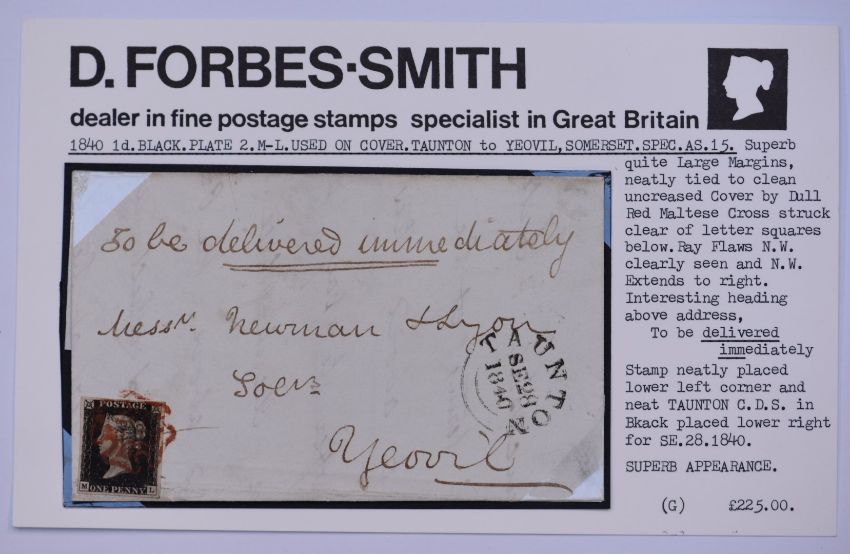 D. FORBES-SMITH
dealer in fine postage stamps specialist in Great Britain
1840 1d.BLACK.PLATE 2.M-L.USED ON COVER.TAUNTON to YEOVIL,SOMERSET.SPEC.AS.15. Superb
quite Large Margins,
neatly tied to clean
uncreased Cover by Dull
Red Maltese Cross struck
clear of letter squares
below. Ray Flaws N.W.
clearly seen and N.W.
Extends to right.
Interesting heading
above address,
To be delivered
immediately
Stamp neatly placed
lower left corner and
neat TAUNTON C.D.S. in
Bkack placed lower right
for SE.28.1840.
SUPERB APPEARANCE.
(G) £225.00.
To be delivered immediately
Messrs. Newman & Lyon
Solrs
Yeovil
TAUNTON
SE28
1840
POSTAGE
M ONE PENNY L